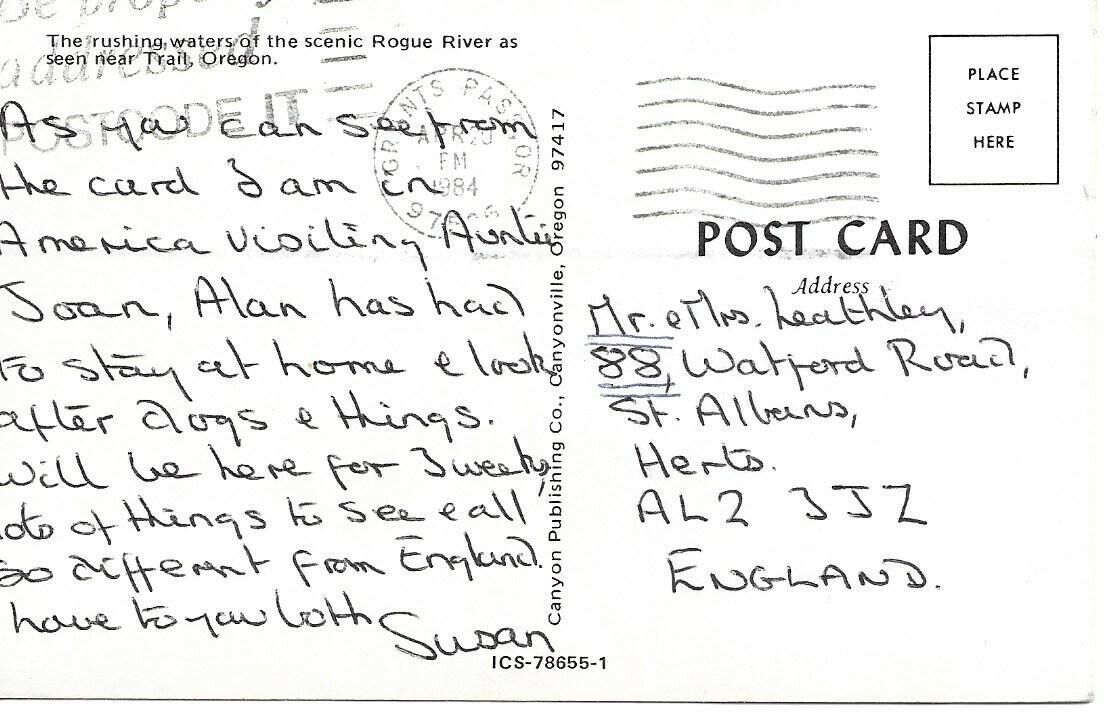 Be properly
addressed
POSTCODE IT
The rushing waters of the scenic Rogue River as
seen near Trail, Oregon.
As you can see from
the card I am in
America visiting Auntie
Joan, Alan has had
to stay at home & look
after dogs & things.
Will be here for 3 weeks,
lots of things to see & all
so different from England.
have to you both
Susan
GRANTS PASS, OR
APR
PM
1984
Canyon Publishing Co., Canyonville, Oregon 97417
ICS-78655-1
PLACE
STAMP
HERE
POST CARD
Address
Mr. & Mrs. Leathley,
88, Watford Road,
St. Albans,
Herts.
AL2 3JZ
ENGLAND.